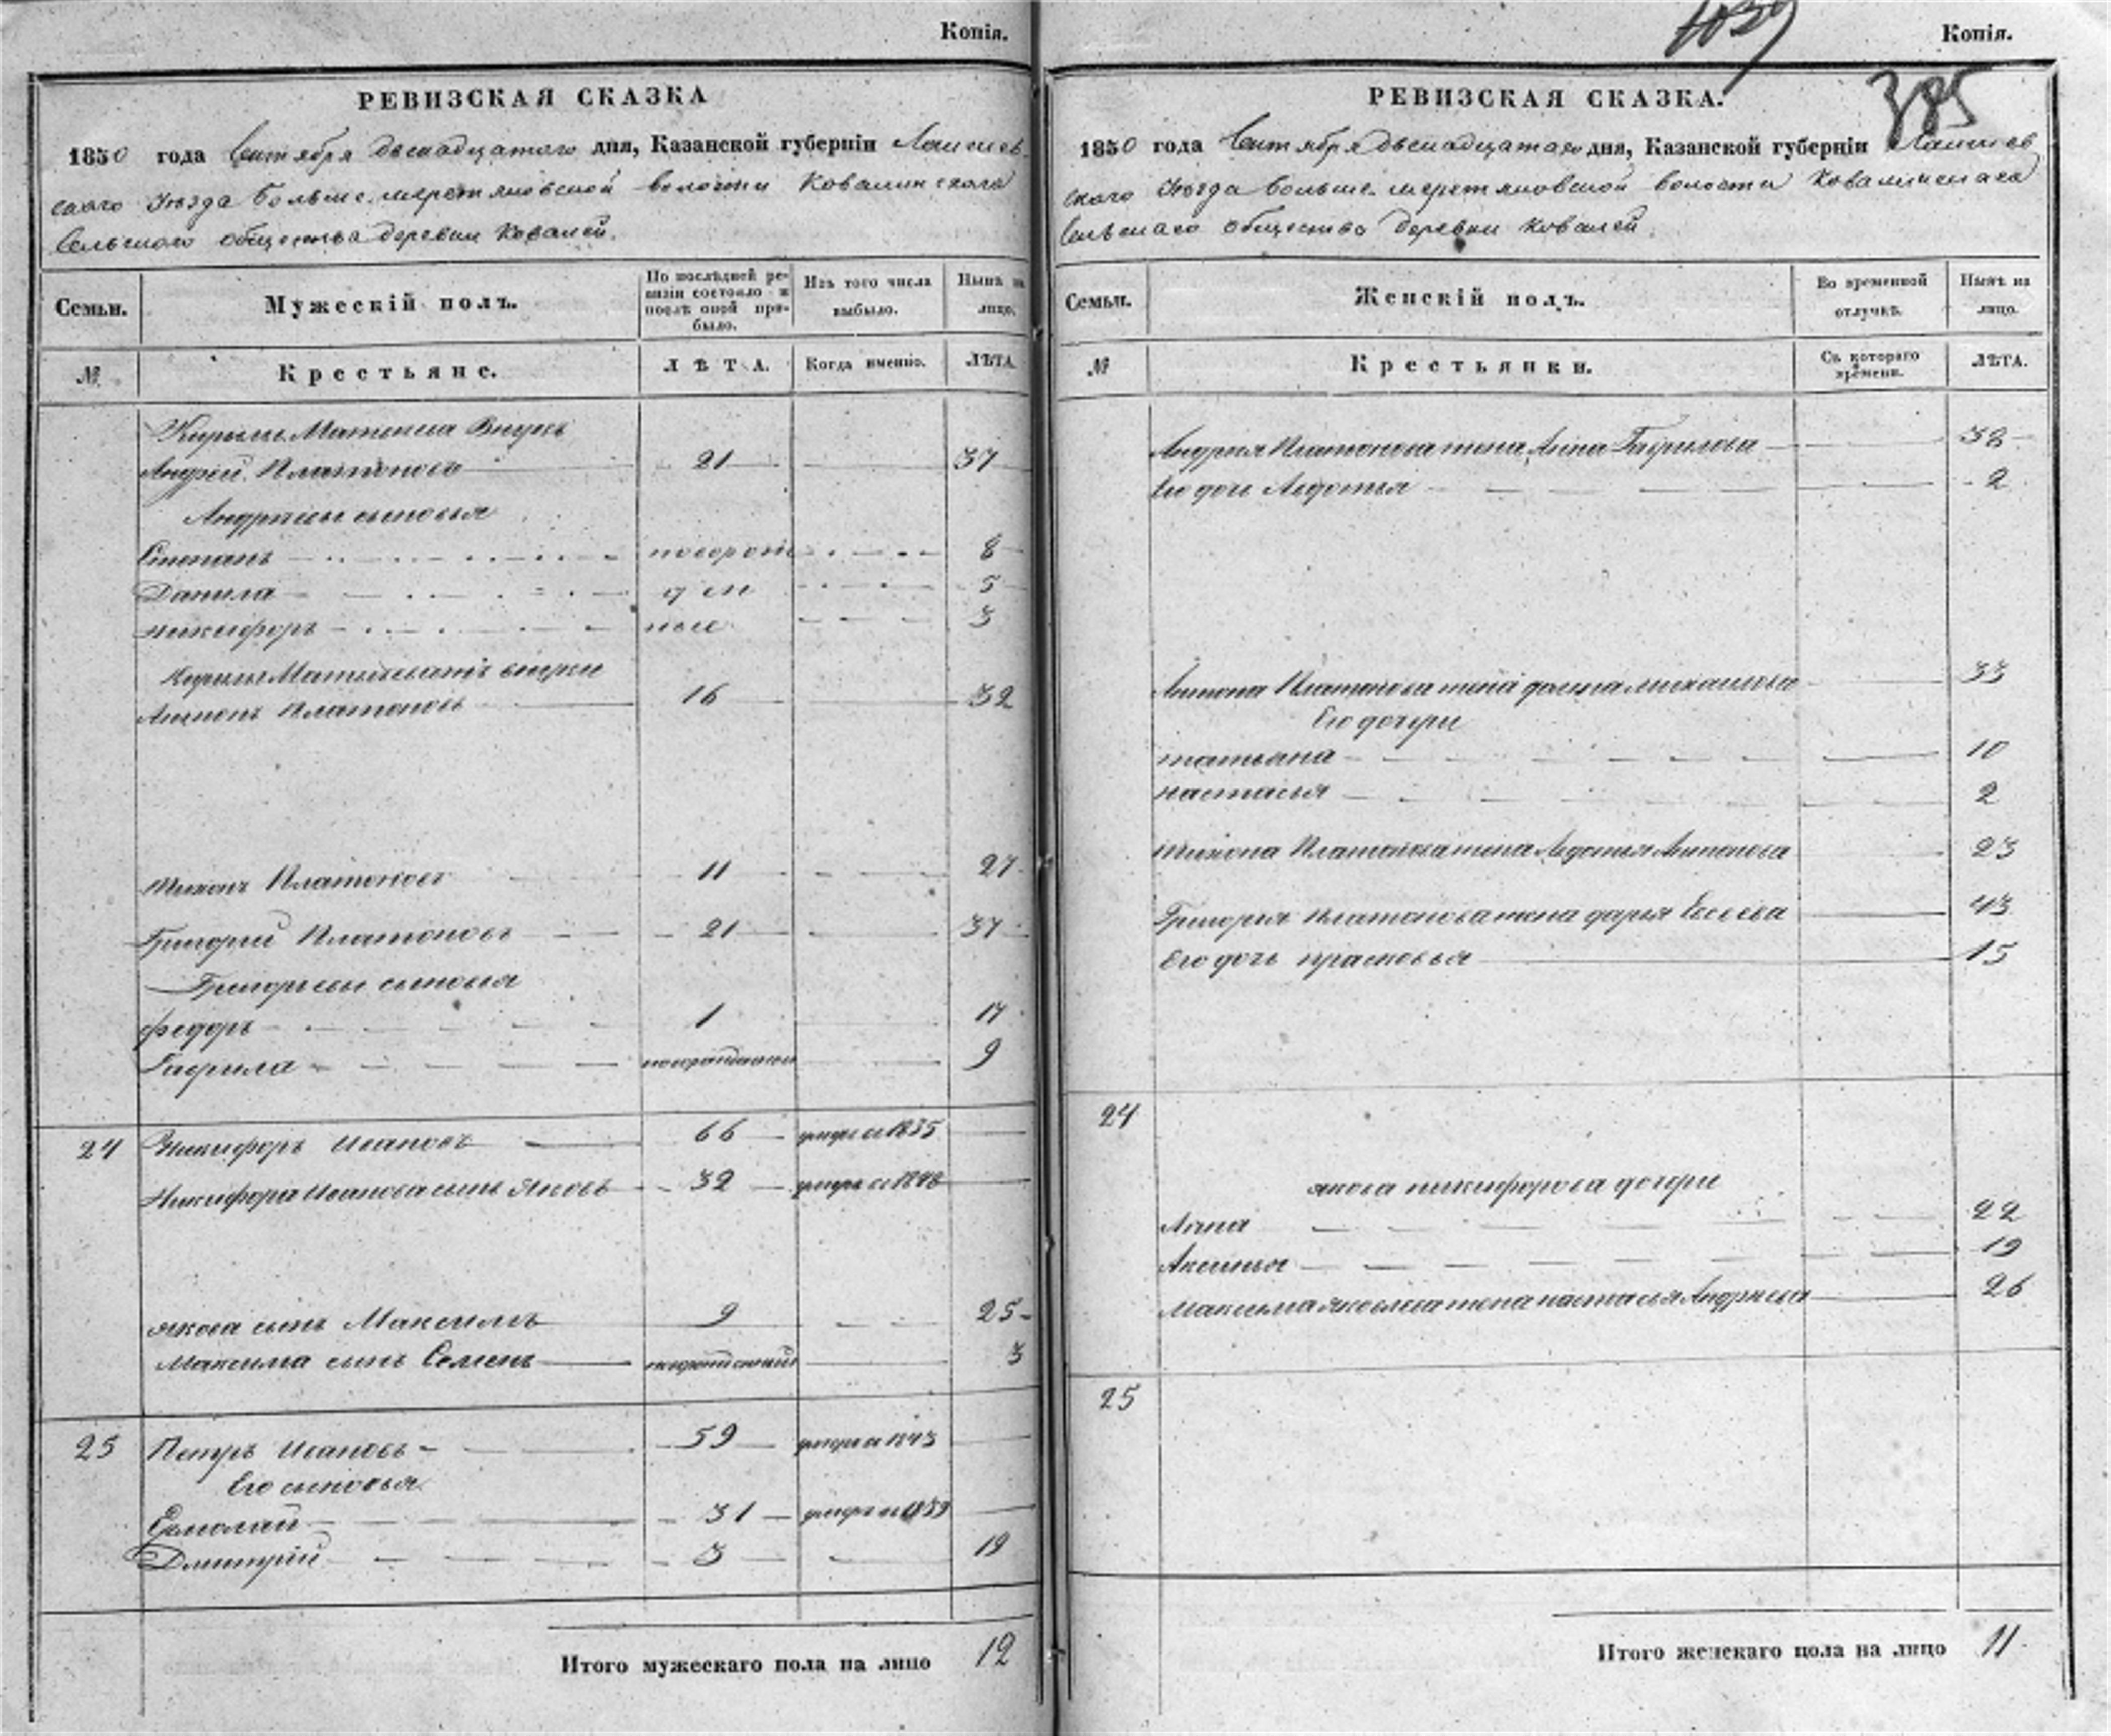 Копія.
РЕВИЗСКАЯ СКАЗКА
1850 года Сентября двенадцатого дня, Казанской губерніи Лаишев
скаго Уѣзда больше мереткозинской волости Ковалинскаго
Сельского общества деревни Ковалей.
Семьи.
Мужескій полъ.
По послѣдней ре-
визіи состояло и
послѣ оной при-
было.
Изъ того числа
выбыло.
Нынѣ на
лицо.
№
Крестьяне.
ЛѢТА.
Когда именно.
ЛѢТА.
Внукъ
Андрей Платоновъ 21 37
Андреевы сыновья
Степанъ новорож 8
Данила ден 5
никифоръ ные 3
внуки
Антонъ Платоновъ 16 32
тихонъ Платоновъ 11 27
Григорий Платоновъ 21 37
Григорьевы сыновья
федоръ 1 17
Гаврила новорожденный 9
24 Никифоръ Ивановъ 66 1835
Никифора Иванова сынъ Яковъ 32 1848
якова сынъ Максимъ 9 25
Максима сынъ Семенъ новорожденный 3
25 Петръ Ивановъ 59 1843
Его сыновья
Ермолай 31 1839
Дмитрій 3 19
Итого мужескаго пола на лицо 12
1039
Копія.
385
РЕВИЗСКАЯ СКАЗКА.
1850 года Сентября двенадцатаго дня, Казанской губерніи Лаишев
скаго Уѣзда больше мереткозинской волости Ковалинскаго
Сельскаго общества деревни Ковалей.
Семьи.
Женскій полъ.
Во временной
отлучкѣ.
Нынѣ на
лицо.
№
Крестьянки.
Съ котораго
времени.
ЛѢТА.
Андрея Платонова жена Анна Гаврилова 38
Его дочь Авдотья 2
Антона Платонова жена михаилова 33
Его дочери
татьяна 10
настасья 2
тихона Платонова жена Авдотья Антонова 23
Григорья платонова жена дарья Евсеева 43
Его дочь прасковья 15
24
якова никифорова дочери
Анна 22
Аксинья 19
Максима яковлева жена настасья Андреева 26
25
Итого женскаго пола на лицо 11